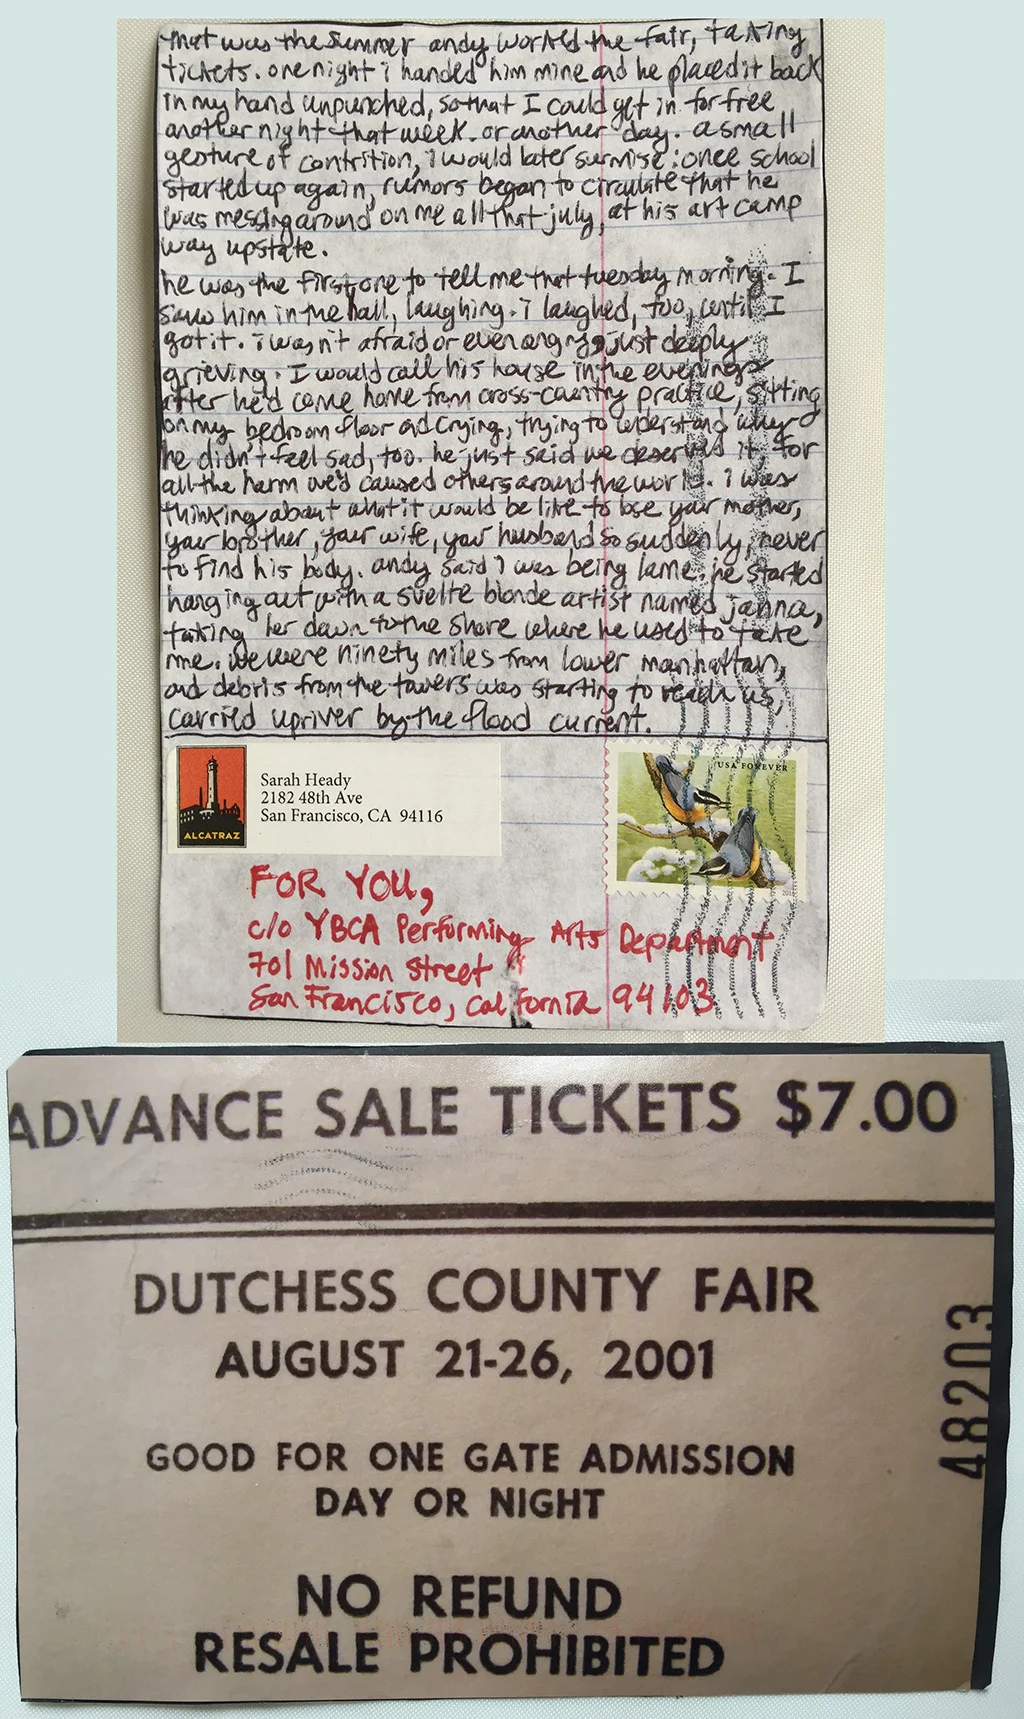 that was the summer andy worked the fair, taking
tickets. one night i handed him mine and he placed it back
in my hand unpunched, so that I could get in for free
another night that week. or another day. a small
gesture of contrition, i would later surmise: once school
started up again, rumors began to circulate that he
was messing around on me all that july, at his art camp
way upstate.
he was the first one to tell me that tuesday morning. I
saw him in the hall, laughing. i laughed, too, until I
got it. i wasn't afraid or even angry, just deeply
grieving. I would call his house in the evenings
after he'd come home from cross-country practice, sitting
on my bedroom floor and crying, trying to understand why
he didn't feel sad, too. he just said we deserved it, for
all the harm we'd caused others around the world. i was
thinking about what it would be like to lose your mother,
your brother, your wife, your husband so suddenly, never
to find his body. andy said I was being lame. he started
hanging out with a svelte blonde artist named janna,
taking her down to the shore where he used to take
me. we were ninety miles from lower manhattan,
and debris from the towers was starting to reach us,
carried upriver by the flood current.
ALCATRAZ
Sarah Heady
2182 48th Ave
San Francisco, CA 94116
USA FOREVER
FOR YOU,
c/o YBCA Performing Arts Department
701 Mission Street
San Francisco, California 94103
ADVANCE SALE TICKETS $7.00
DUTCHESS COUNTY FAIR
AUGUST 21-26, 2001
48203
GOOD FOR ONE GATE ADMISSION
DAY OR NIGHT
NO REFUND
RESALE PROHIBITED